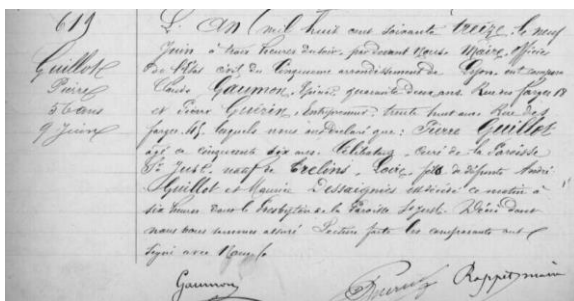 619
Guillot
Pierre
56 ans
9 Juin
L'An mil huit cent soixante treize, le neuf
Juin à trois heures du soir, par devant Nous, Maire, Officier
de l'Etat civil du Cinquième arrondissement de Lyon ont comparu
Claude Gaumon, quarante deux ans, Rue des farges 18
et Pierre Guérin, Entrepreneur, trente huit ans, Rue des
farges, lesquels nous ont déclaré que : Pierre Guillot
âgé de cinquante six ans, Célibataire, curé de la Paroisse
St Just, natif de Crelins, Loire, fils de défunts André
Guillot et Desseignies est décédé ce matin à
six heures dans le Presbytère de la Paroisse St Just. Décès dont
nous nous sommes assuré. Lecture faite les comparants ont
signé avec Nous
Gaumon Guérin Rappet maire